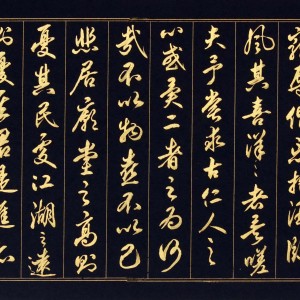 寵辱偕忘把酒臨
風其喜洋洋者矣嗟
夫予嘗求古仁人之
心或異二者之為何
哉不以物喜不以己
悲居廟堂之高則
憂其民處江湖之遠
則憂其君是進亦